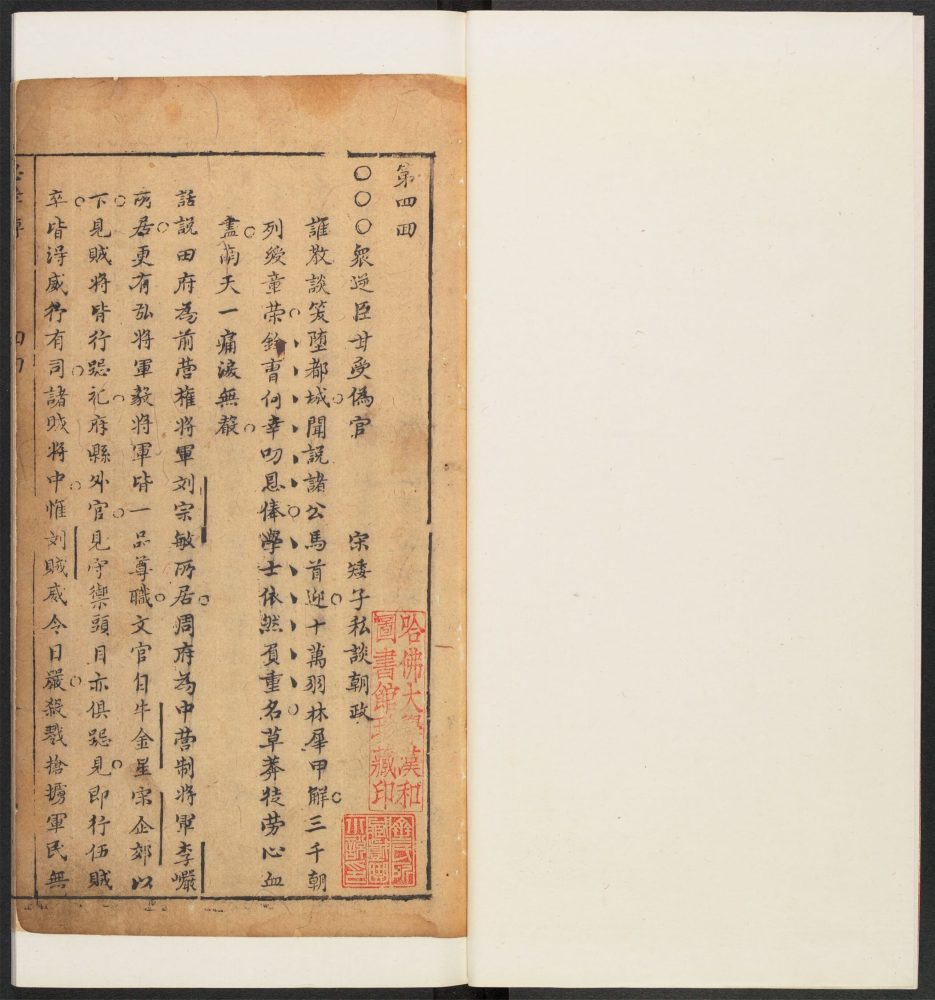 第四回
○○○衆逆臣甘受偽官　宋矮子私談朝政
誰敎談笑墮都城聞説諸公馬首迎十萬羽林犀甲解三千朝
列綬章荣鈴曹何幸叨恩俸學士依然負重名草莽徒劳心血
盡蘭天一痛淚無聲
話説田府為前营權将軍刘宗敏所居周府為中营制将軍李巖
所居更有弘将軍毅将軍皆一品尊職文官自牛金星宋企郊以
下見賊将皆行跽礼府縣外官見守禦頭目亦俱跽見即行伍賊
卒皆淂威行有司諸賊将中惟刘賊威令日嚴殺戮搶擄軍民無
哈佛大學漢和
圖書館珍藏印